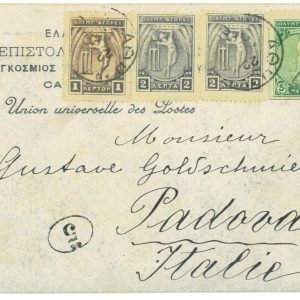 ΕΛ
ΟΛΥΜΠ. ΑΓΩΝΕΣ
ΟΛΥΜΠ. ΑΓΩΝΕΣ
ΟΛΥΜΠ. ΑΓΩΝΕΣ
ΕΠΙΣΤΟΛ
ΓΚΟΣΜΙΟΣ
CA
1 ΛΕΠΤΟΝ 1
2 ΛΕΠΤΑ 2
2 ΛΕΠΤΑ 2
5
Union universelle des Postes
Monsieur
Gustave Goldschmie
Padova
Italie